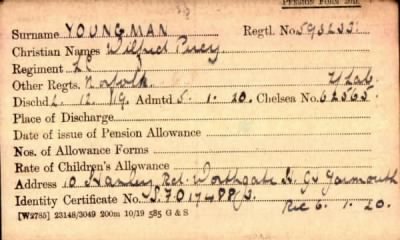 PENSION FORM 20B.
Surname YOUNGMAN Regtl. No. 593233
Christian Names Wilfred Percy
Regiment LC
Other Regts. Norfolk Y Lab
Dischd 2. 12. 19. Admtd 5. 1. 20. Chelsea No. 62565
Place of Discharge
Date of issue of Pension Allowance
Nos. of Allowance Forms
Rate of Children's Allowance
Address 10 Stanley Rd. Northgate St. Gt Yarmouth
Identity Certificate No. S. 7017488/S.
[W2785] 23148/3049 200m 10/19 585 G & S Rec 6. 1. 20.